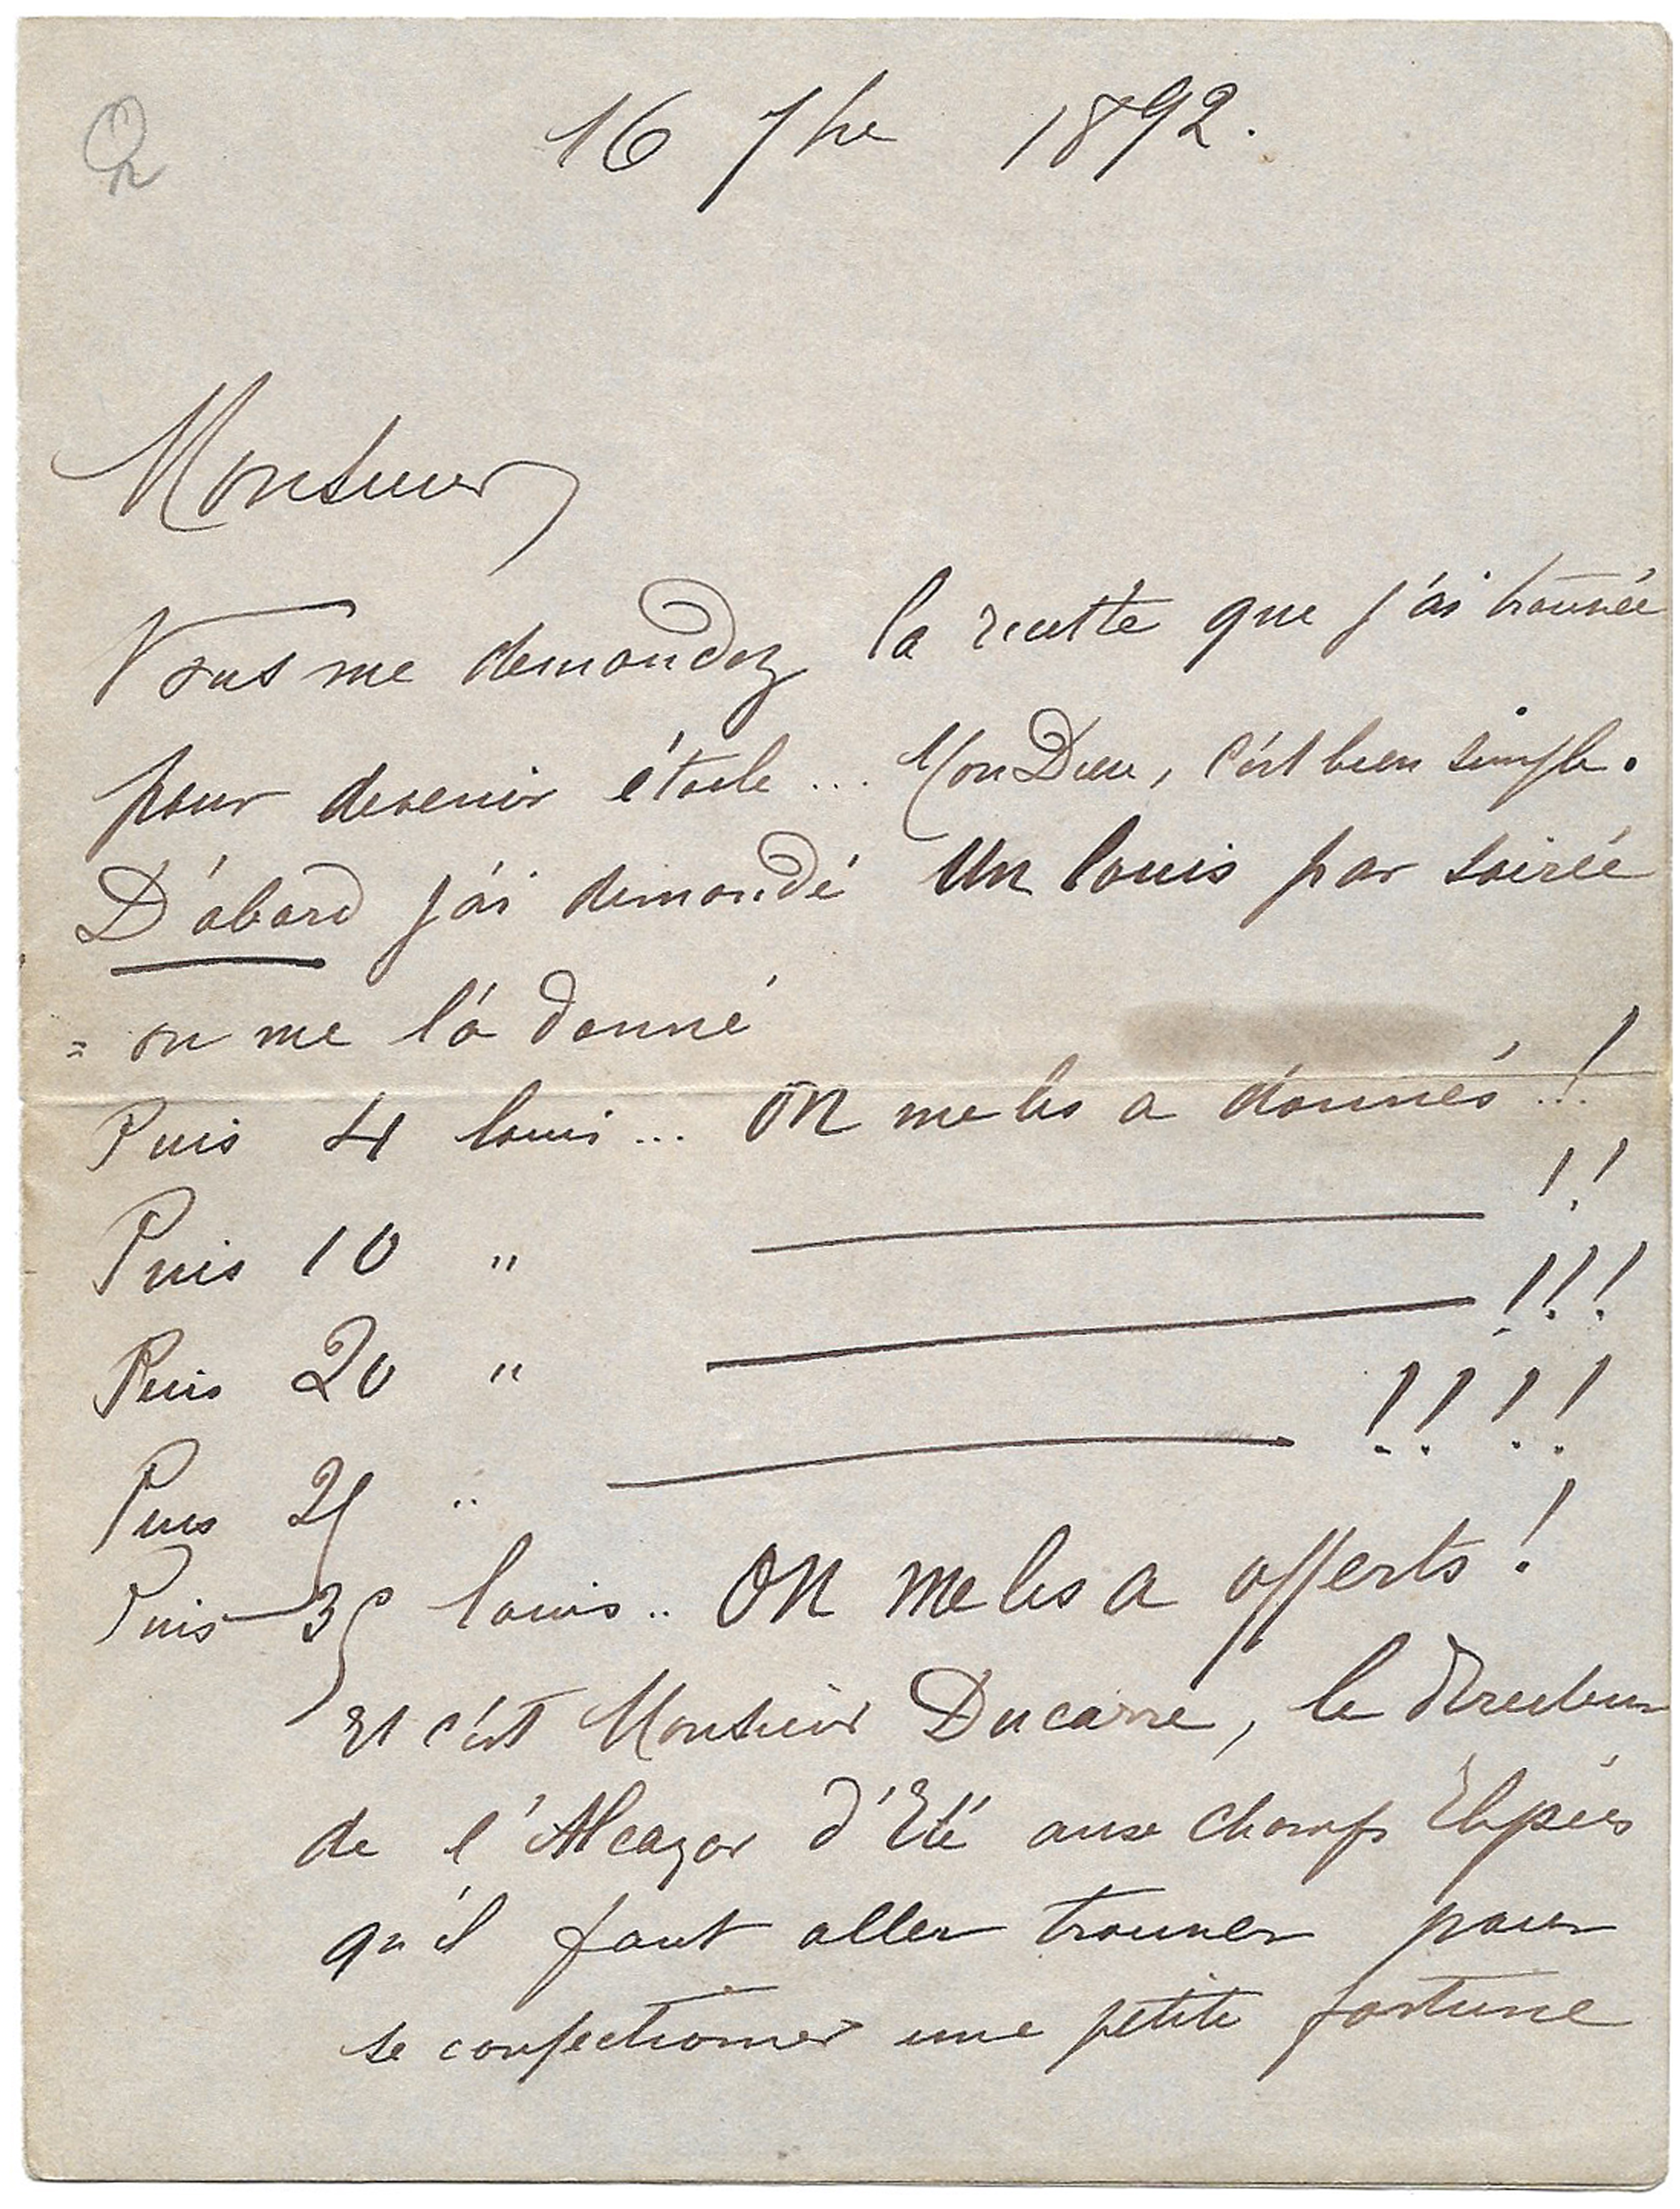 16 7bre 1892.
Monsieur
Vous me demandez la recette que j'ai trouvée
pour devenir étoile... Mon Dieu, c'est bien simple.
D'abord j'ai demandé Un louis par soirée
= on me l'a donné
Puis 4 louis... On me les a donnés..!
Puis 10 " ——— !!
Puis 20 " ——— !!!
Puis 25 " ——— !!!!
Puis 35 louis.. On me les a offerts!
Et c'est Monsieur Ducarre, le directeur
de l'Alcazar d'Eté aux Champs Elysées
qu'il faut aller trouver pour
se confectionner une petite fortune